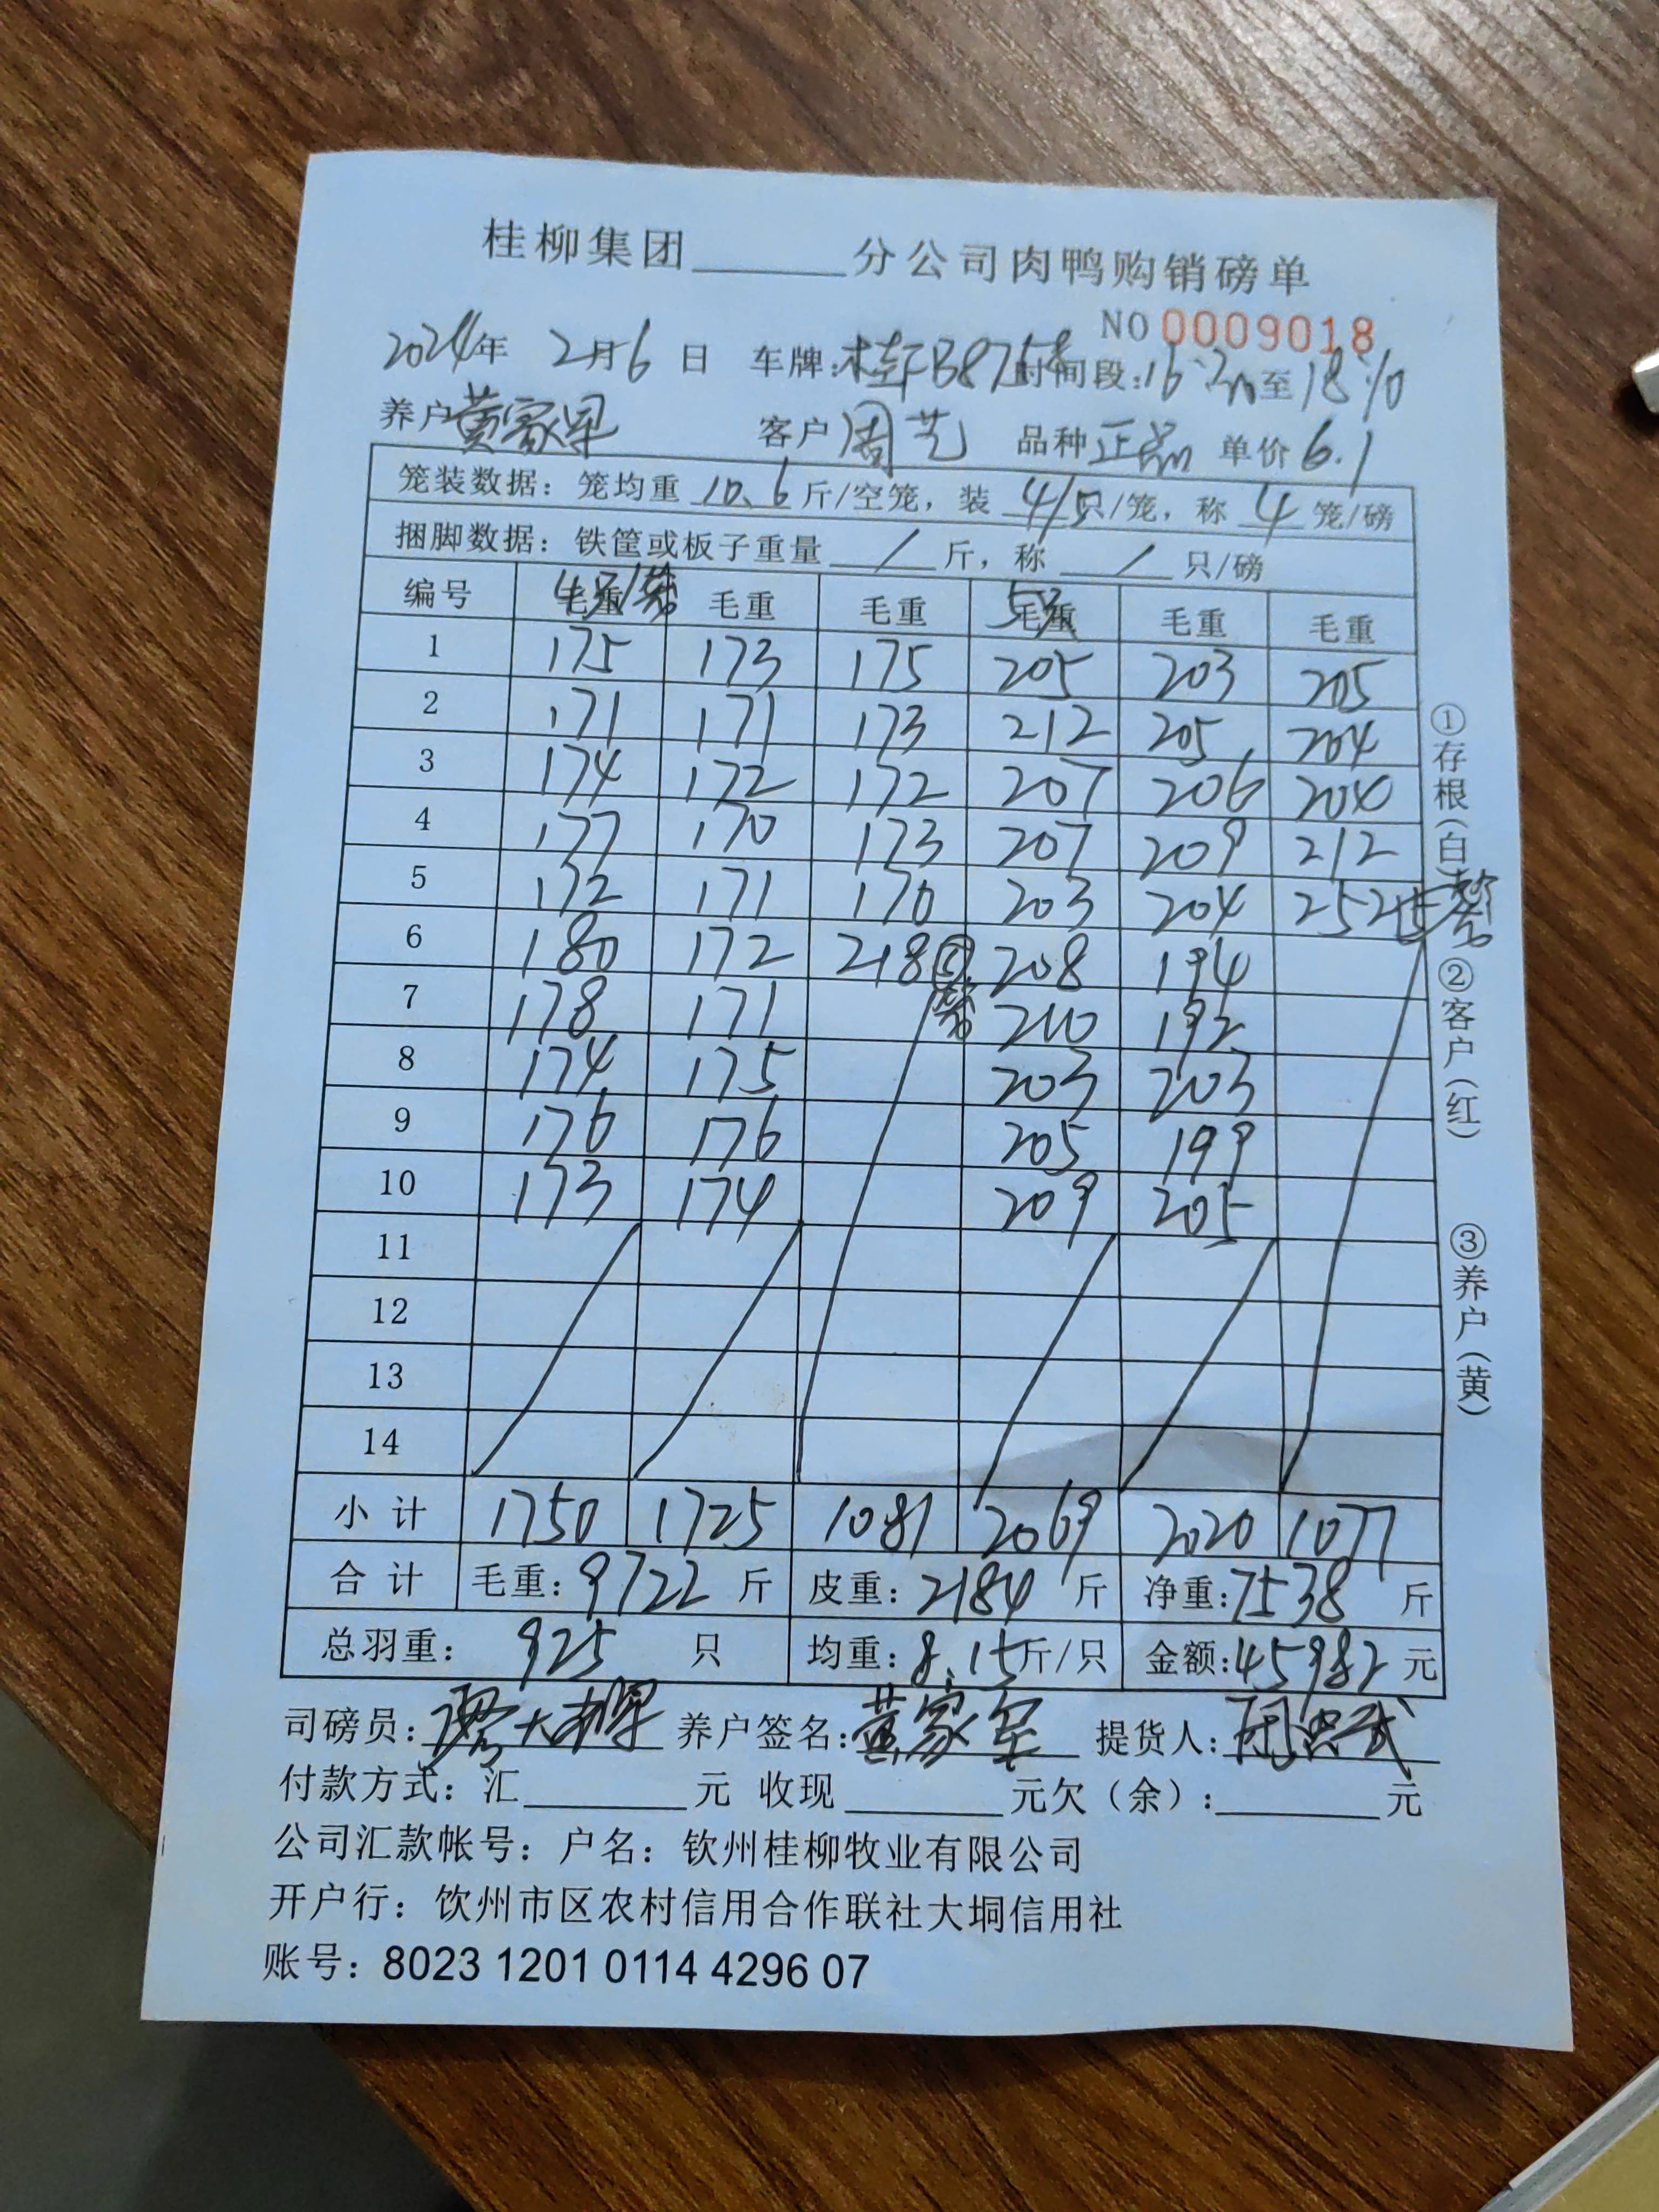 桂柳集团______分公司肉鸭购销磅单
NO 0009018
2024年 2月6日 车牌:桂FB875 时间段:16: 至18:10
养户黄家军 客户周艺 品种正品 单价6.1
笼装数据: 笼均重 10.6 斤/空笼, 装 4/5只/笼, 称 4 笼/磅
捆脚数据: 铁筐或板子重量 / 斤, 称 / 只/磅
编号 毛重 4只/笼 毛重 毛重 毛重 5只 毛重 毛重
1 175 173 175 205 203 205
2 171 171 173 212 205 204
3 174 172 172 207 206 204
4 177 170 173 207 209 212
5 172 171 170 203 204 252 5笼
6 180 172 218 ⑤笼 208 194
7 178 171 210 192
8 174 175 203 203
9 176 176 205 199
10 173 174 209 205
11
12
13
14
小计 1750 1725 1081 2069 2020 1077
合计 毛重:9722 斤 皮重:2184 斤 净重:7538 斤
总羽重: 925 只 均重:8.15斤/只 金额:45982 元
司磅员: 养户签名:黄家军 提货人:
付款方式: 汇______元 收现______元欠(余):______元
公司汇款帐号: 户名: 钦州桂柳牧业有限公司
开户行: 钦州市区农村信用合作联社大垌信用社
账号: 8023 1201 0114 4296 07
①存根(白) ②客户(红) ③养户(黄)